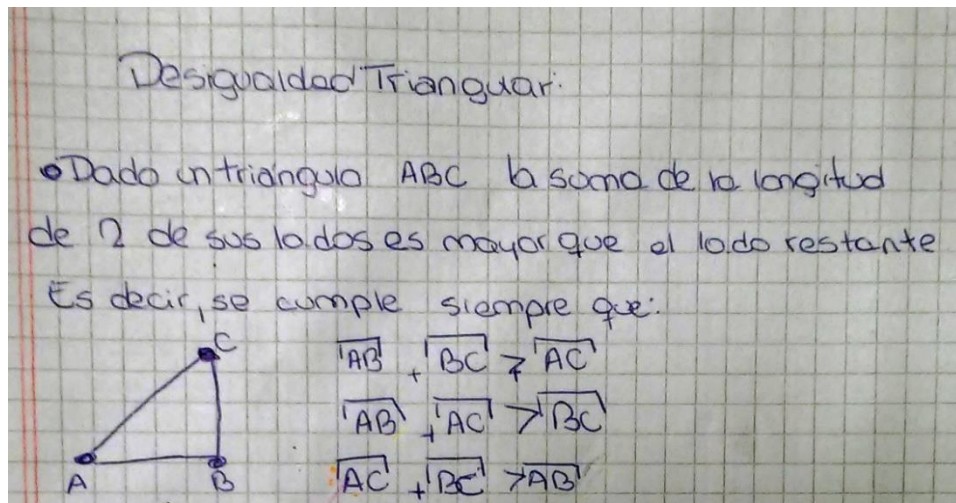 Desigualdad Triangular.
• Dado un triángulo ABC la suma de la longitud
de 2 de sus lados es mayor que el lado restante
Es decir, se cumple siempre que:
C
A
B
AB + BC > AC
AB + AC > BC
AC + BC > AB